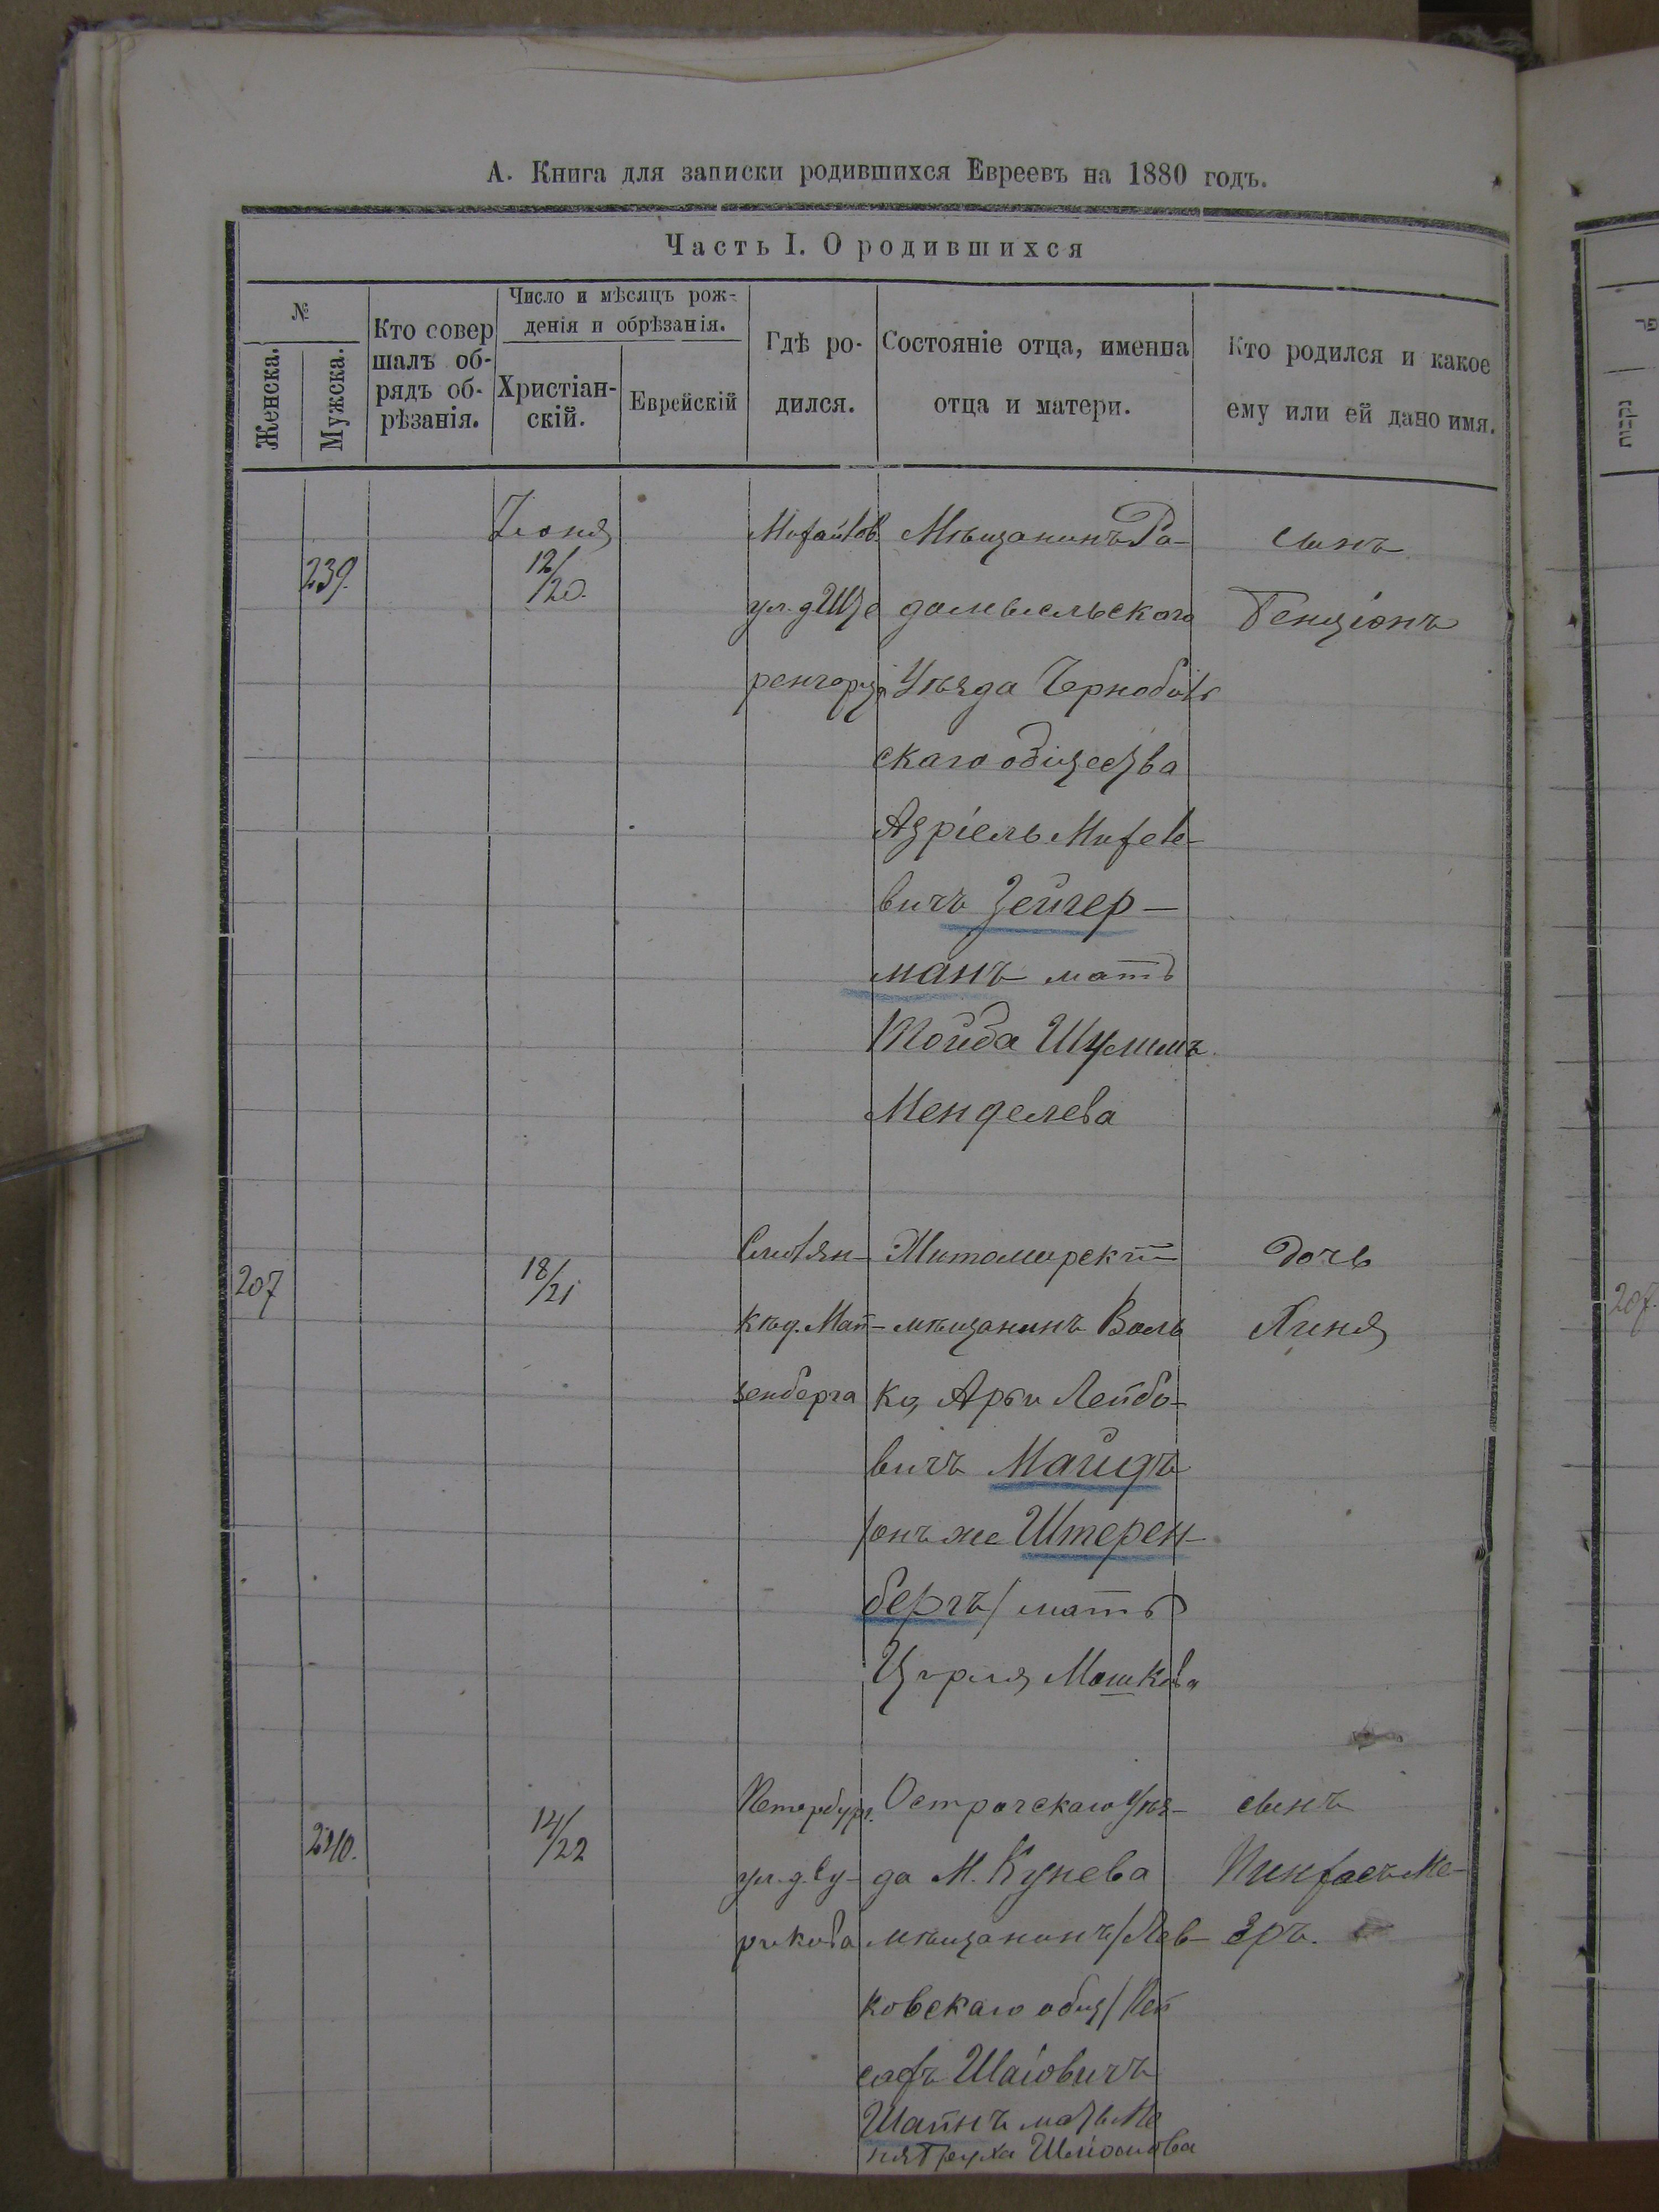 А. Книга для записки родившихся Евреевъ на 1880 годъ.
Часть I. О родившихся
№
Женска.
Мужска.
Кто совер
шалъ об-
рядъ об-
рѣзанія.
Число и мѣсяцъ рож-
денія и обрѣзанія.
Христіан-
скій.
Еврейскій
Гдѣ ро-
дился.
Состояніе отца, имена
отца и матери.
Кто родился и какое
ему или ей дано имя.
239.
Іюня
12/20.
Михайлов.
ул. д Ще
ренгорца
Мѣщанинъ Ра-
домысльского
Уѣзда Чернобыль
скаго общества
Азріель Михеле-
вичъ Зейгер-
манъ мать
Тойба Шулимъ
Менделева
сынъ
Бенціонъ
207
18/21
Слобян-
кѣ д. Май-
зенберга
Житомирскій
мѣщанинъ Воль
ко, Арьи Лейбо-
вичъ Магидъ
/онъ же Штерен-
бергъ/ мать
Цирля Мошкова
дочь
Хиня
240.
14/22
Петербург.
ул. д. Су-
рикова
Острогскаго Уѣз-
да М. Кунева
мѣщанинъ/Лев-
ковскаго общ/
Шаіовичъ
Шайнъ мать
сынъ
Пинхасъ Ме-
еръ.
נקבות
207.